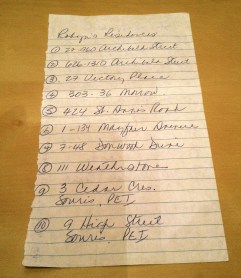 Robyn's Residences
① 22-160 Archibald Street
② 606-1310 Archibald Street
③ 27 Victory Place
④ 303-36 Morrow
⑤ 424 St. Annes Road
⑥ 1-159 Mayfair Avenue
⑦ 7-48 Donwood Drive
⑧ 111 Weatherstone
⑨ 3 Cedar Cres.
Souris, PEI
⑩ 9 High Street
Souris, PEI